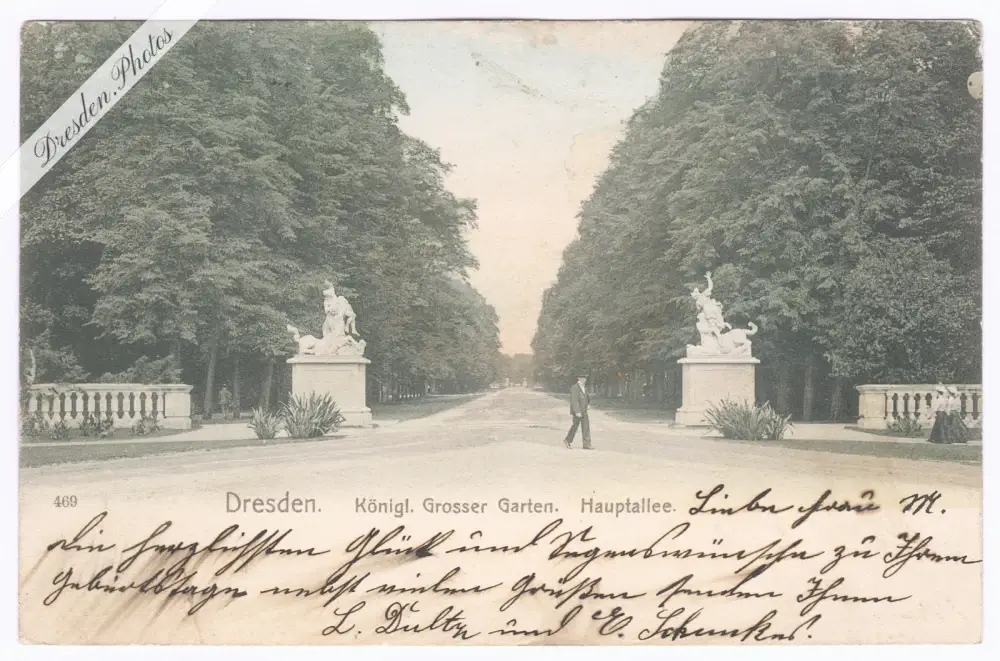 Dresden.Photos
469 Dresden. Königl. Grosser Garten. Hauptallee. Liebe Frau M.
Die herzlichsten Glück und Segenswünsche zu Ihrem
Geburtstage nebst vielen Grüßen senden Ihnen
L. und E.